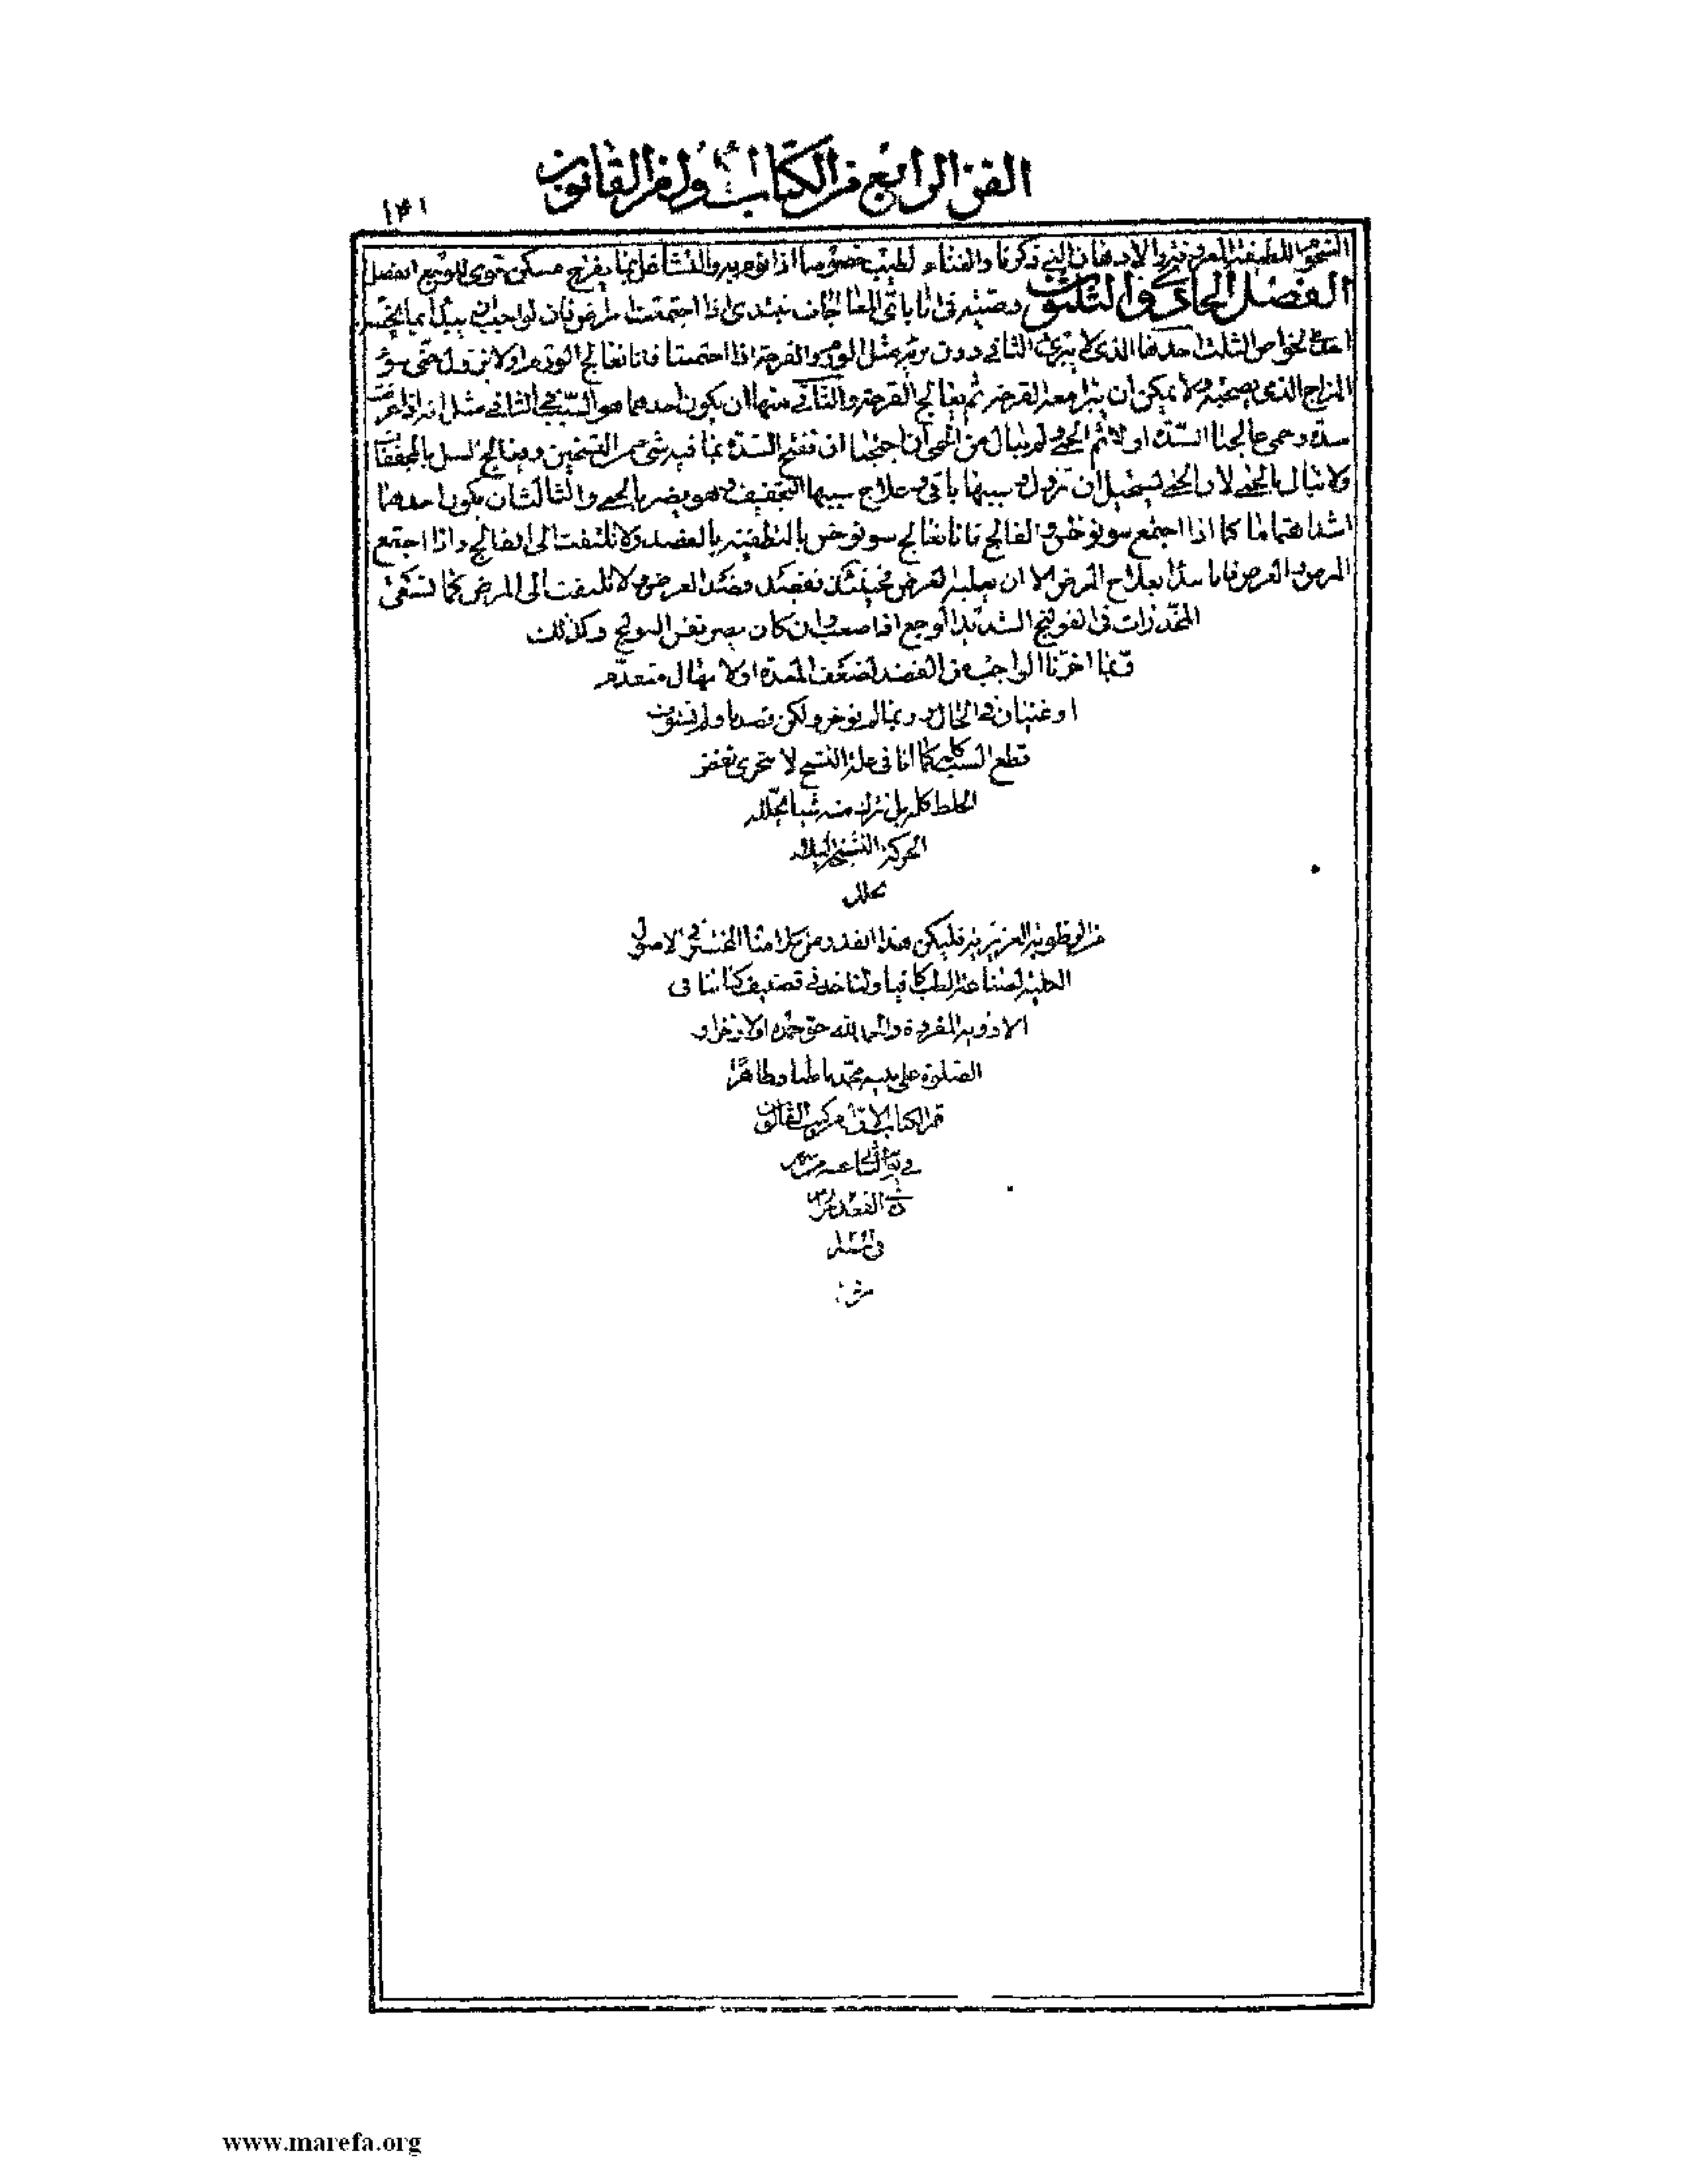 الفن الرابع من الكتاب الاول من القانون
١٣١
الشحوم اللطيفة المعروفة والادهان التي ذكرنا والغناء الطيب خصوصا اذا نوم به والتشاغل بما يفرح مسكن قوى للوجع الفصل
الفصل الحادى والثلثون وصية فى انا باى المعالجات نبتدى اذا اجتمعت امراض فان الواجب ان يبتدأ بما يخصه
احدى الخواص الثلث احدىها الذى لا يبرئ الثانى دون برئه مثل الورم والقرحة اذا اجتمعتا فانا نعالج الورم اولا حتى يزول سوء
المزاج الذى يصحبه ولا يمكن ان تبرأ معه القرحة ثم نعالج القرحة والثانى منها ان يكون احدهما هو السبب فى الثانى مثل انه اذا عرضت
سدة وحمى عالجنا السدة اولا ثم الحمى ولم نبال من الحمى ان احتجنا ان نفتح السدة بما فيه شىء من التسخين ونعالج السل بالمجففات
ولا نبال بالحمى لان الحمى يستحيل ان تزول وسببها باقى وعلاج سببها التجفيف وهو يضر بالحمى والثالث ان يكون احدهما
اشد اهتماما كما اذا اجتمع سونوخس والفالج فانا نعالج سونوخس بالتطفية بالفصد ولا نلتفت الى الفالج واذا اجتمع
المرض والعرض فانا نبدأ بعلاج المرض الا ان يغلبه العرض فحينئذ نقصد قصد العرض ولا نلتفت الى المرض كما نسقى
المخدرات فى القولنج الشديد الوجع اذا صعب وان كان يضر نفس القولنج وكذلك
ربما اخرنا الواجب من الفصد لضعف المعدة او لاسهال متقدم
او غثيان فى الحال وربما لم نوخر ولكن فصدنا ولم نستوف
قطع السبب كله كما انا فى علة التشنج لا نتحرى نفض
الخلط كله بل نترك منه شيئا تحلله
الحركة التشنجية لئلا
تحلل
من الرطوبة الغريزية فليكن هذا القدر من كلامنا المختصر فى الاصول
الكلية لصناعة الطب كافيا ولنأخذ فى تصنيف كتابنا فى
الادوية المفردة والحمد لله حق حمده اولا واخرا و
الصلوة على نبيه محمد باطنا وظاهرا
تم الكتاب الاول من كتب القانون
فى
ذى القعدة
www.marefa.org